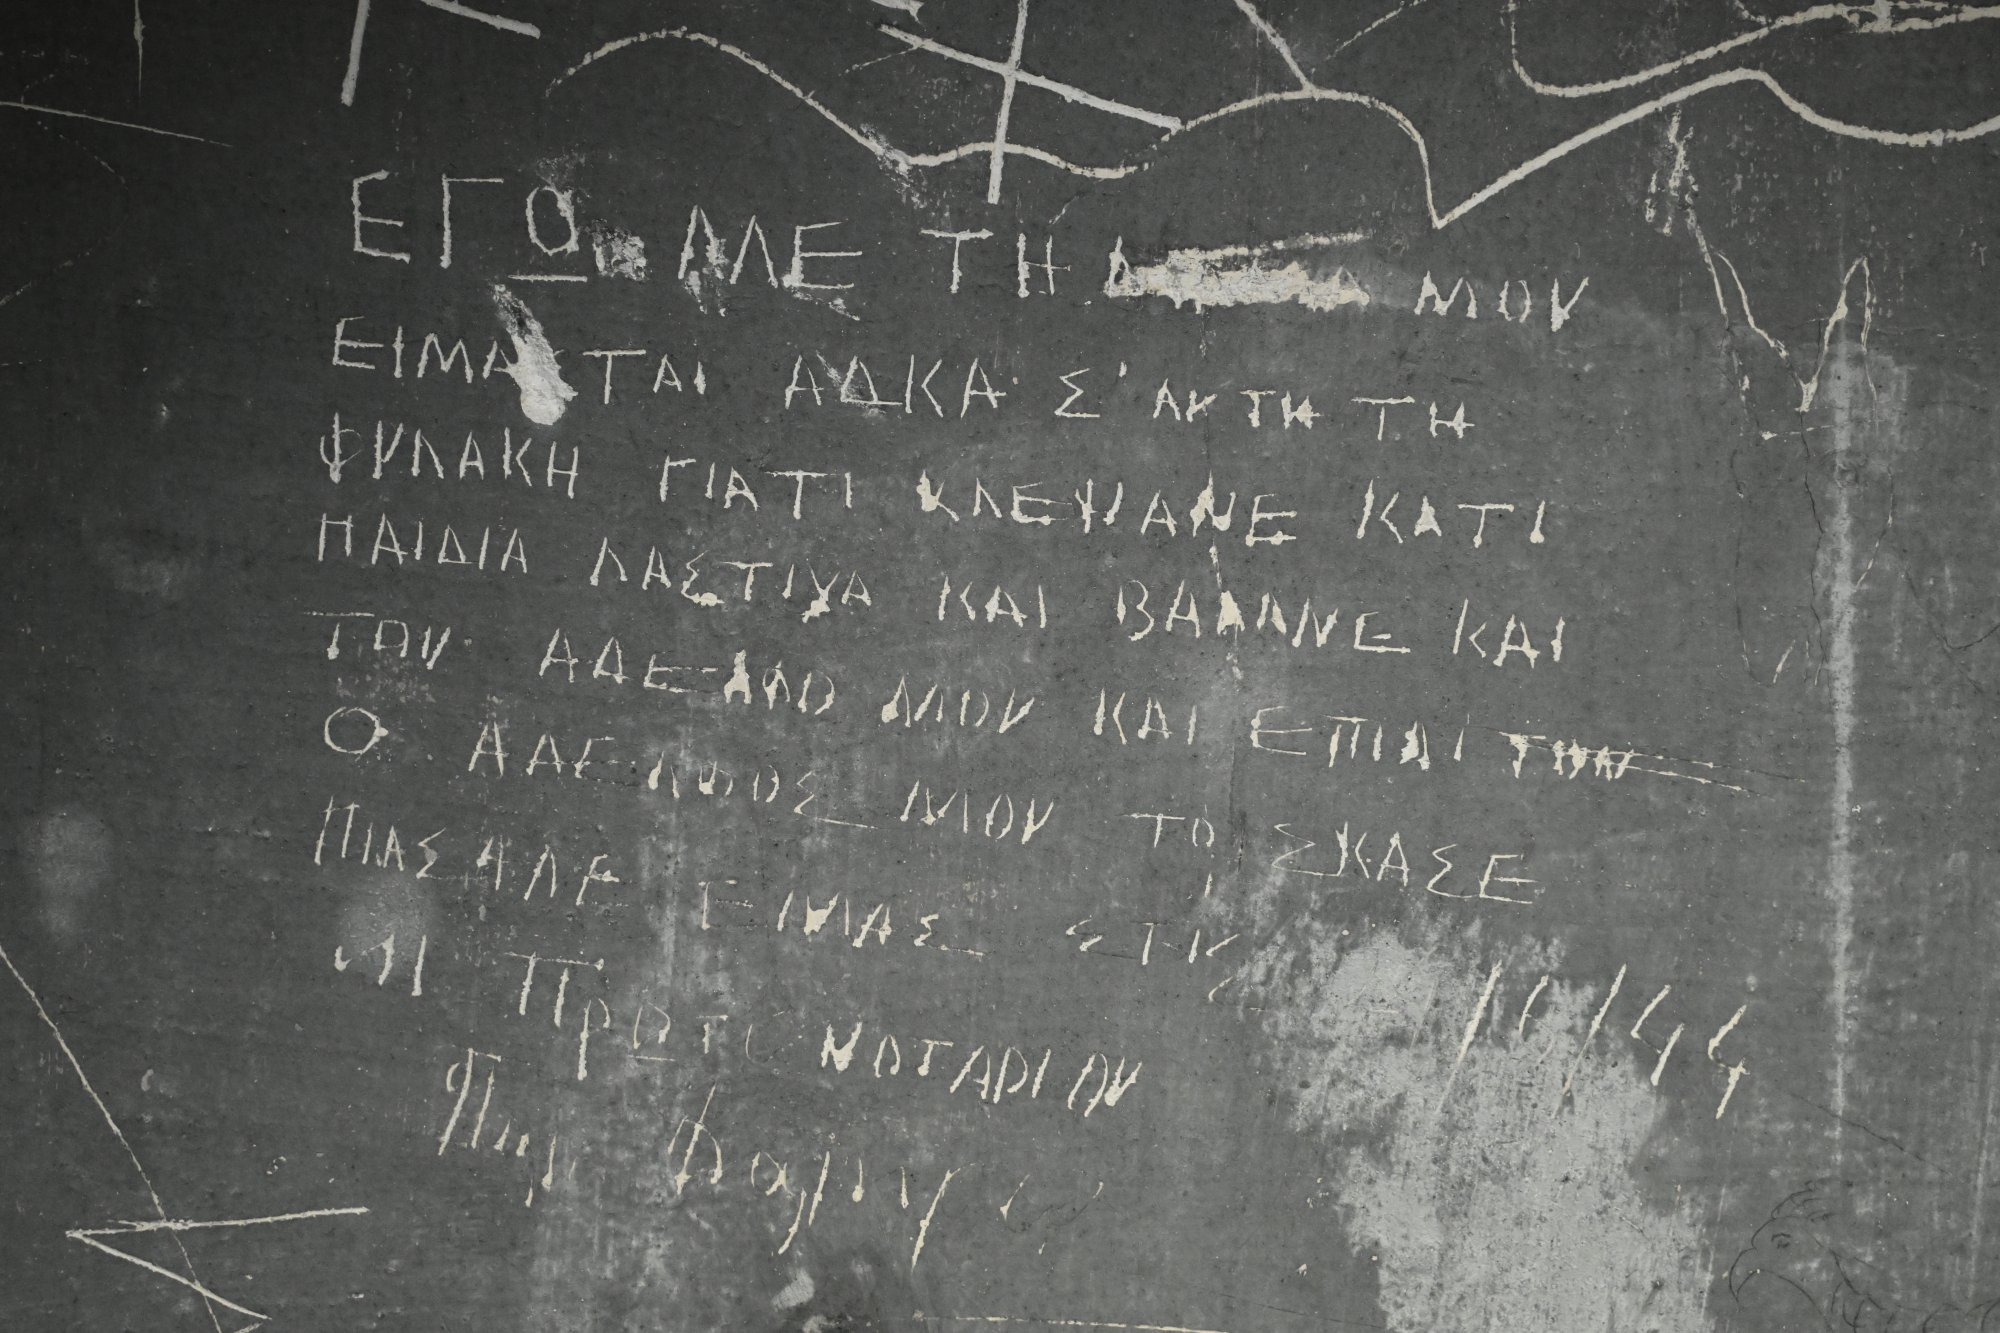 ΕΓΩ ΜΕ ΤΗ ΜΟΥ
ΕΙΜΑΣΤΑΙ ΑΔΚΑ Σ' ΑΥΤΗ ΤΗ
ΦΥΛΑΚΗ ΓΙΑΤΙ ΚΛΕΨΑΝΕ ΚΑΤΙ
ΠΑΙΔΙΑ ΛΑΣΤΙΧΑ ΚΑΙ ΒΑΛΑΝΕ ΚΑΙ
ΤΟΝ ΑΔΕΛΦΟ ΜΟΥ ΚΑΙ ΕΠΙΔΙ
Ο ΑΔΕΛΦΟΣ ΜΟΥ ΤΟ ΣΚΑΣΕ
ΠΙΑΣΑΝΕ ΕΜΑΣ ΣΤΙΣ 10/44
ΠΡΩΤΟΝΟΤΑΡΙΟΥ